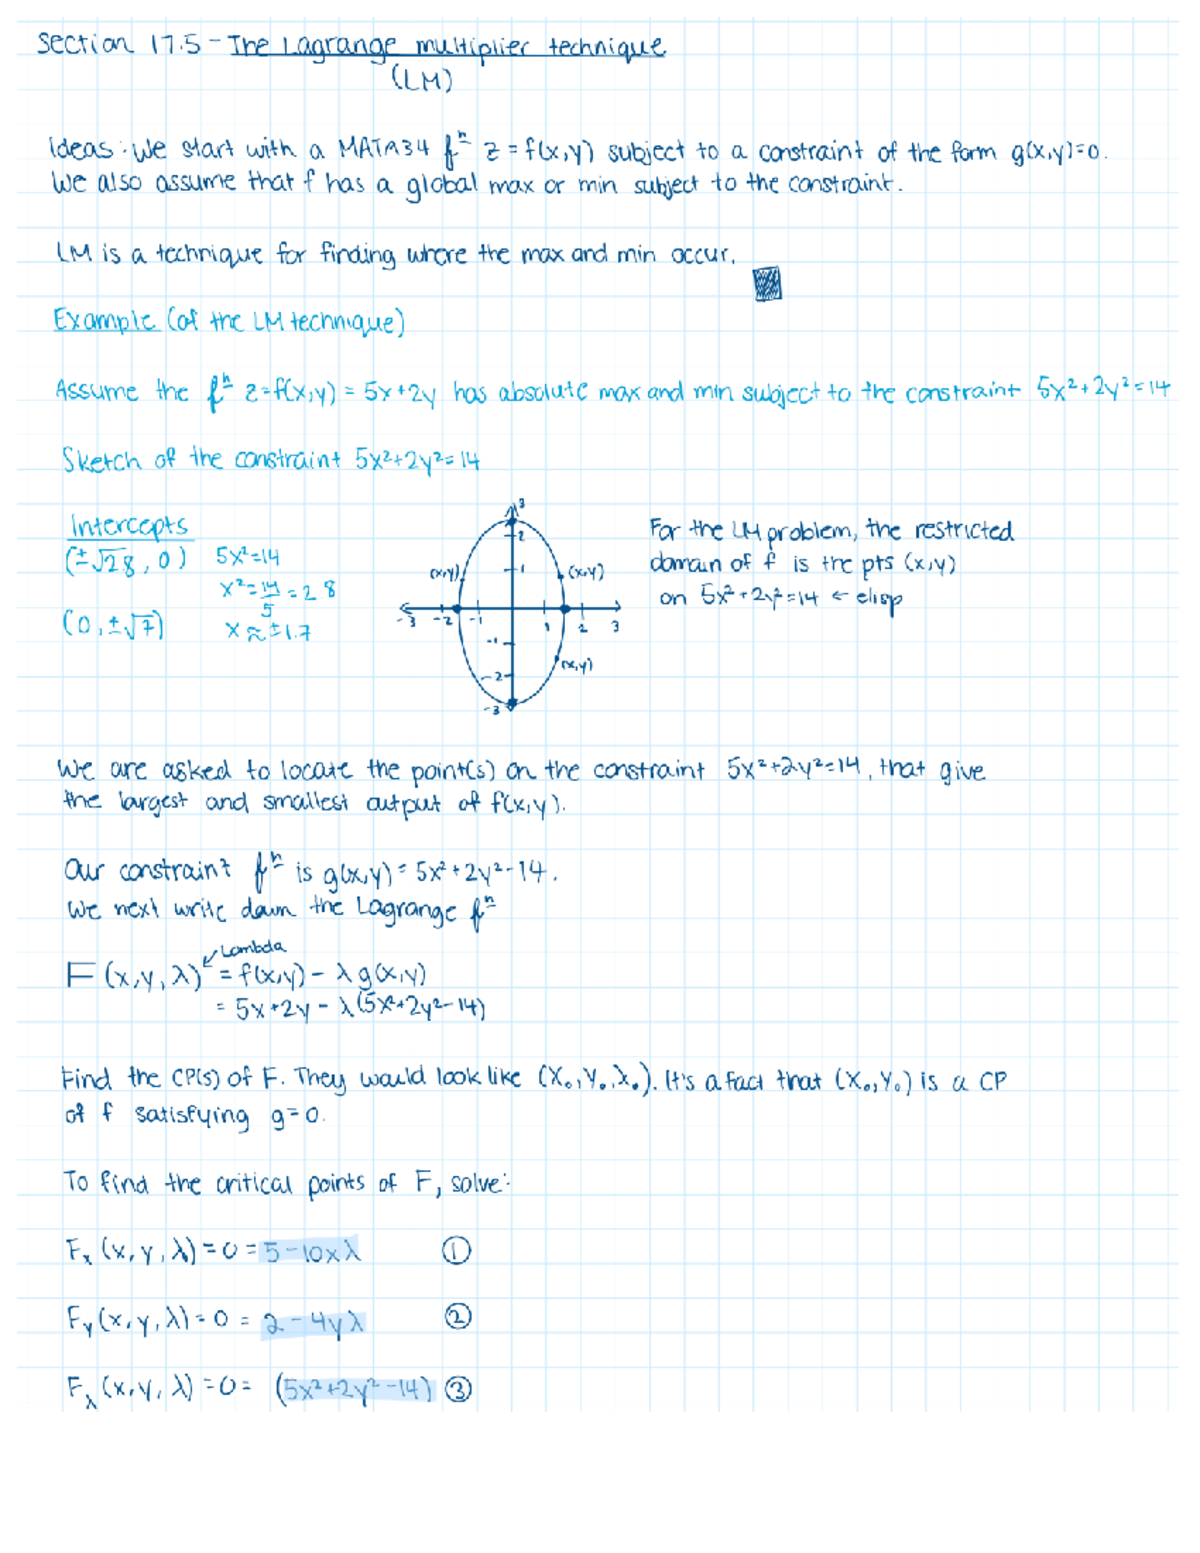 Section 17.5 - The Lagrange multiplier technique
(LM)
Ideas: We start with a MATA34 fⁿ z = f(x,y) subject to a constraint of the form g(x,y)=0.
We also assume that f has a global max or min subject to the constraint.
LM is a technique for finding where the max and min occur.
Example (of the LM technique)
Assume the fⁿ z=f(x,y) = 5x+2y has absolute max and min subject to the constraint 5x²+2y²=14
Sketch of the constraint 5x²+2y²=14
Intercepts
(±√2.8, 0) 5x²=14
x²=14/5=2.8
(0,±√7) x≈±1.7
3
2
1
-1
-2
-3
-3 -2 -1 1 2 3
(x,y)
(x,y)
(x,y)
For the LM problem, the restricted
domain of f is the pts (x,y)
on 5x²+2y²=14 ← elisp
We are asked to locate the point(s) on the constraint 5x²+2y²=14, that give
the largest and smallest output of f(x,y).
Our constraint fⁿ is g(x,y)=5x²+2y²-14.
We next write down the Lagrange fⁿ
↙Lambda
F(x,y,λ) = f(x,y) - λg(x,y)
= 5x+2y - λ(5x²+2y²-14)
Find the CP(s) of F. They would look like (x₀,y₀,λ₀). It's a fact that (x₀,y₀) is a CP
of f satisfying g=0.
To find the critical points of F, solve:
Fₓ(x,y,λ)=0=5-10xλ ①
F_y(x,y,λ)=0=2-4yλ ②
F_λ(x,y,λ)=0=(5x²+2y²-14) ③